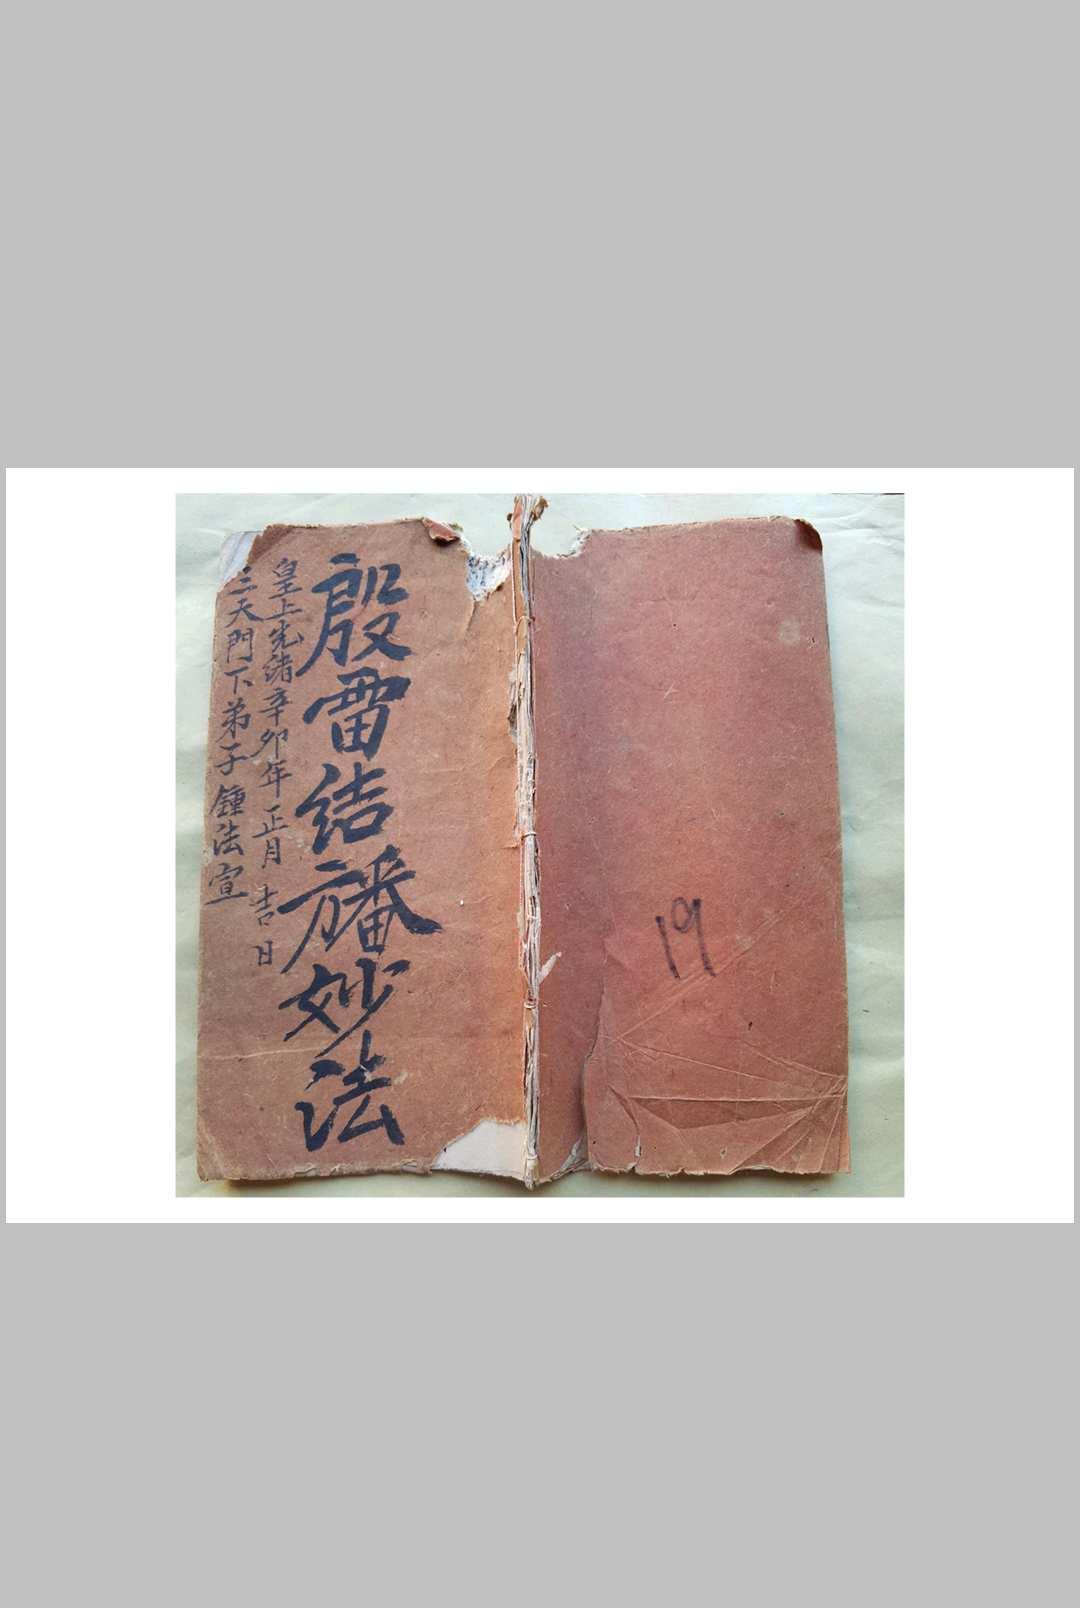 殷雷结旛妙法
皇上光緒辛卯年正月吉日
三天門下弟子鍾法宣
19